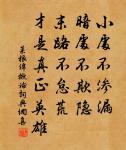 小處不滲漏
暗處不欺隱
末路不怠荒
才是真正英雄
菜根譚